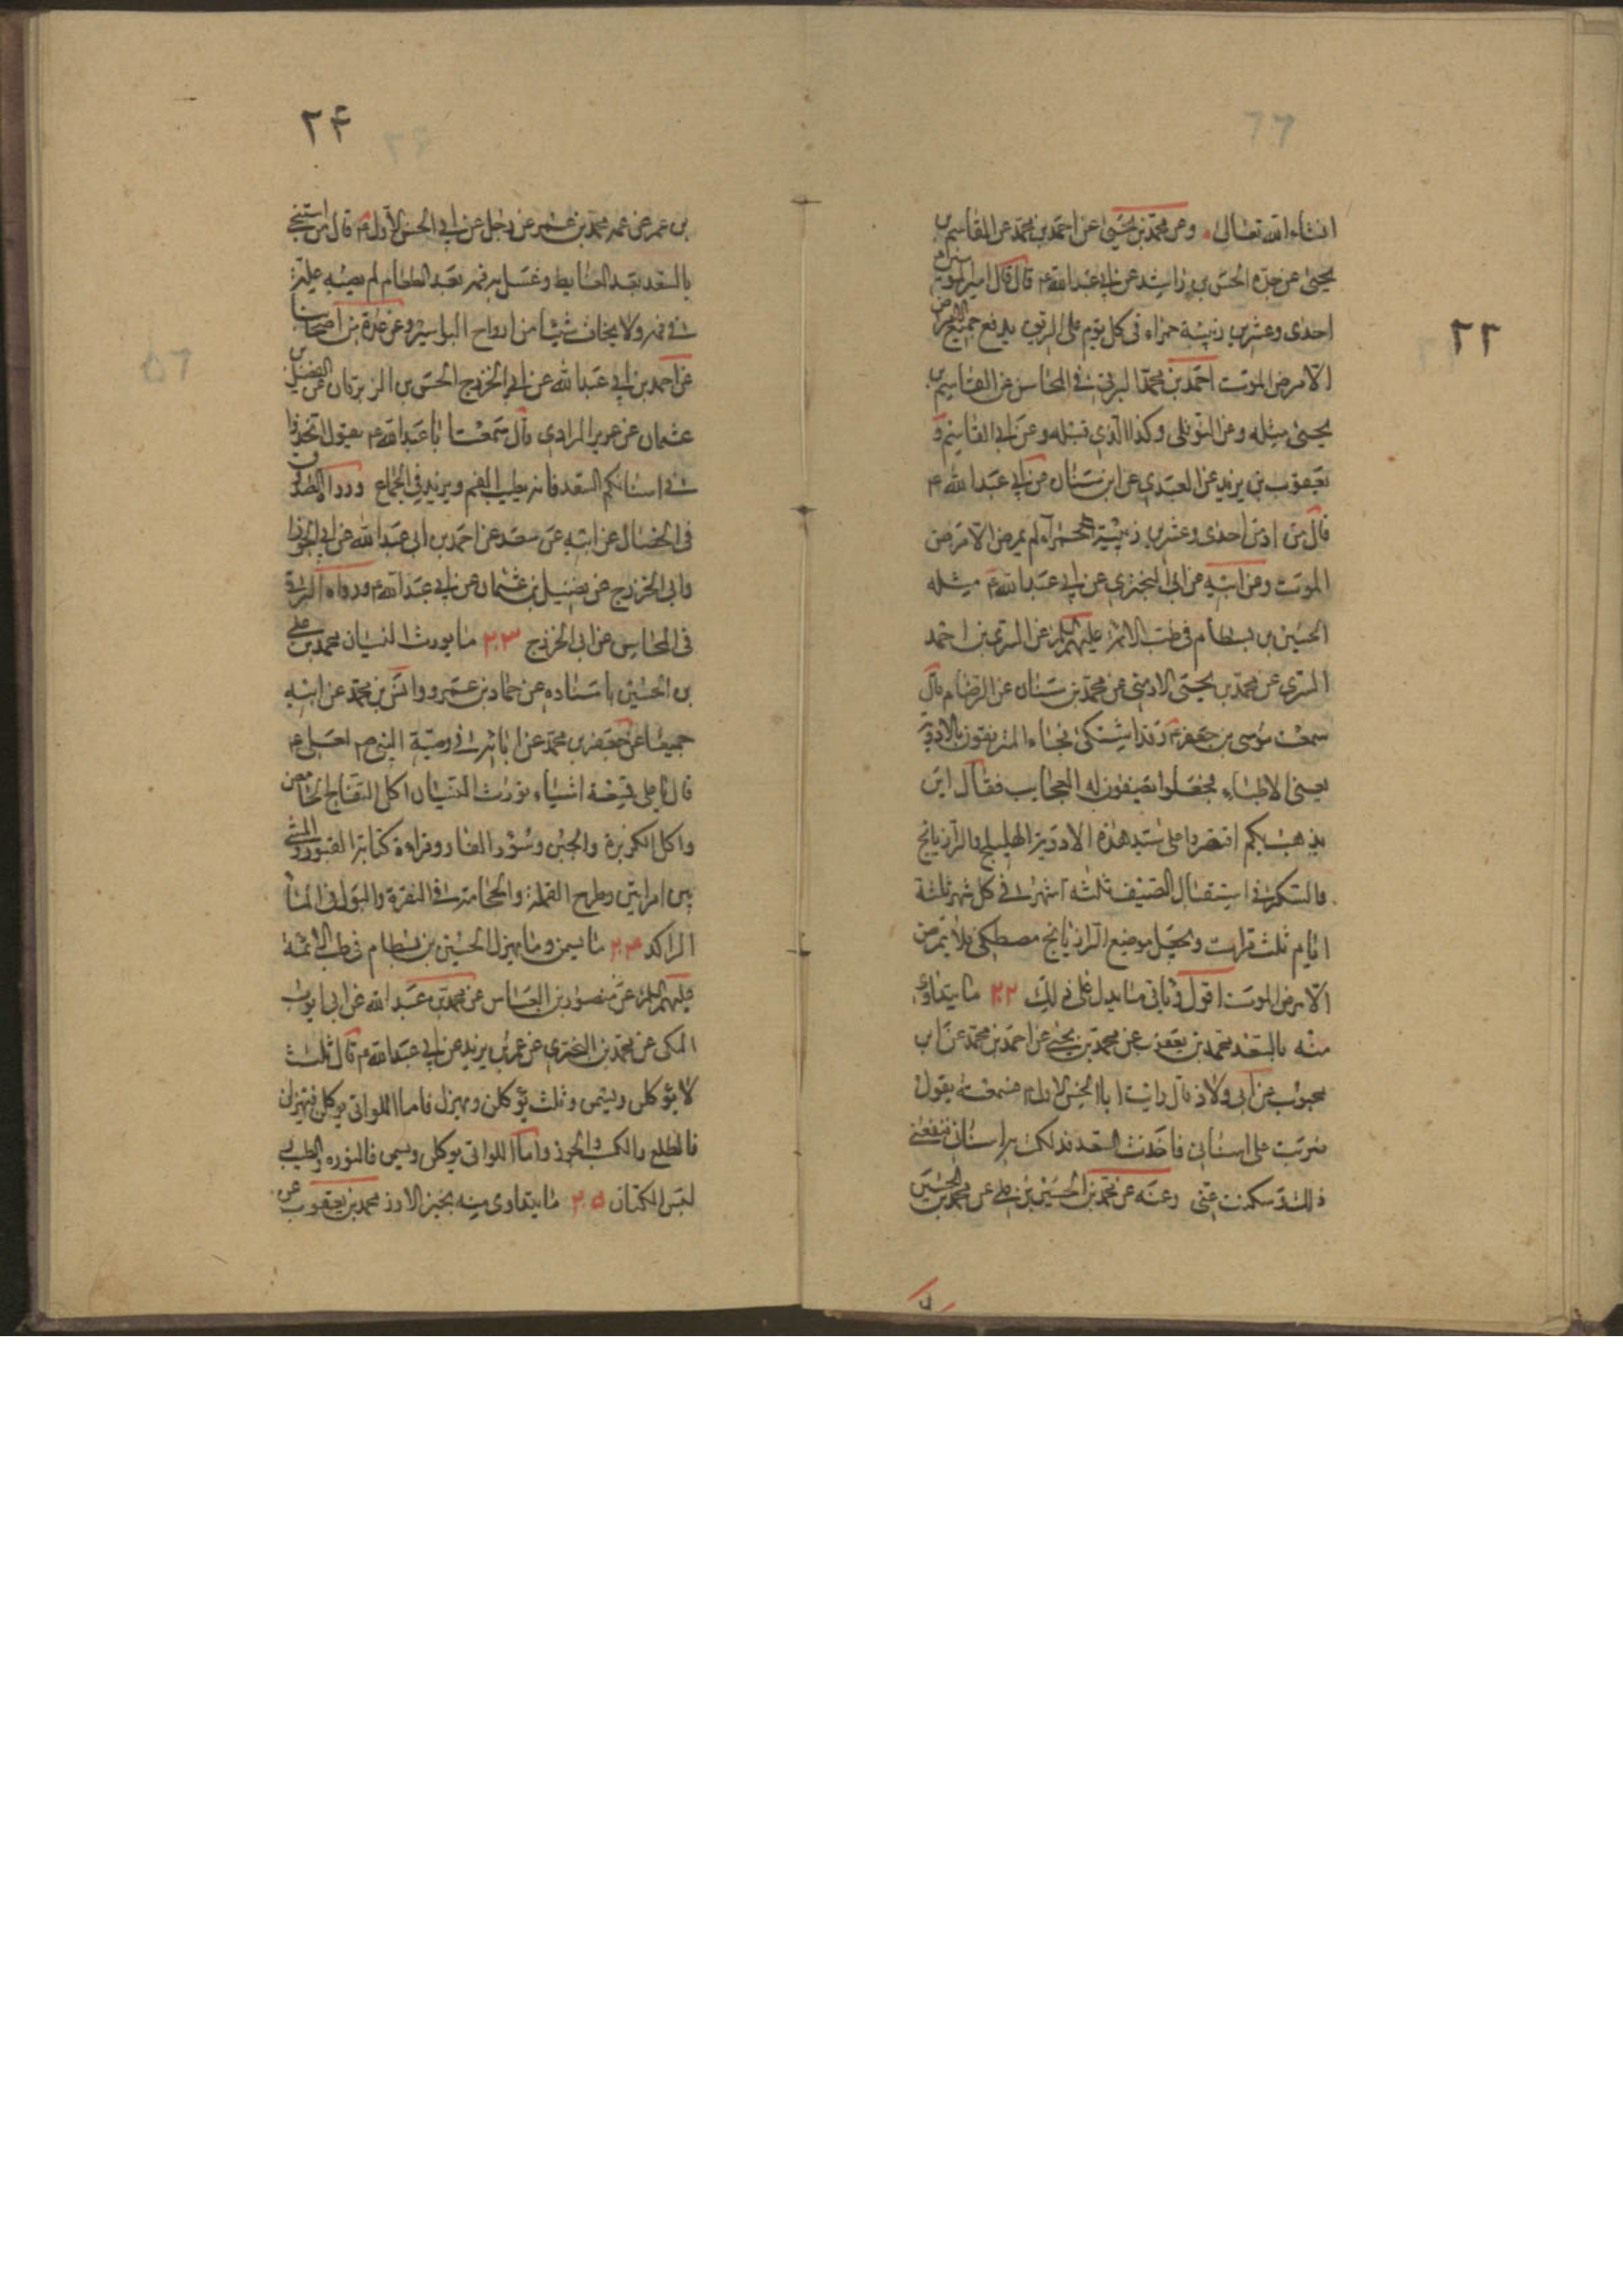 انشاء الله تعالى وعن محمد بن يحيى عن احمد بن محمد عن القاسم بن
يحيى عن جده الحسن بن راشد عن ابى عبد الله ع قال قال امير المؤمنين
احدى وعشرين زبيبة حمراء فى كل يوم على الريق يدفع جميع الامراض
الا مرض الموت احمد بن محمد البرقى فى المحاسن عن القاسم بن
يحيى مثله وعن النوفلى وكذا الذى قبله وعن ابى القاسم و
يعقوب بن يزيد عن العبدى عن ابن سنان عن ابى عبد الله ع
قال من ادمن احدى وعشرين زبيبة حمراء لم يمرض الا مرض
الموت وعن ابيه عن ابى البخترى عن ابى عبد الله ع مثله
الحسين بن بسطام فى طب الائمة عليهم السلام عن السرى بن احمد
السرى عن محمد بن يحيى الارمنى عن محمد بن سنان عن الرضا ع قال
سمعت موسى بن جعفر ع وقد اشتكى فجاء المترفقون بالادوية
يعنى الاطباء فجعلوا يصفون له العجايب فقال اين
يذهب بكم اقتصروا على سيد هذه الادوية الهليلج والرازيانج
والسكر فى استقبال الصيف ثلثة اشهر فى كل شهر ثلثة
ايام ثلث مرات ويجعل موضع الرازيانج مصطكى فلا يمرض
الا مرض الموت اقول وياتى ما يدل على ذلك ٢٢ ما يتداوى
منه بالسعد محمد بن يعقوب عن محمد بن يحيى عن احمد بن محمد عن ابن
محبوب عن ابى ولاد قال رايت ابا الحسن الاول ع فسمعته يقول
ضربت على اسنانى فاخذت السعد فدلكت به اسنانى فنفعنى
ذلك وسكنت عنى وعنه عن محمد بن الحسين بن على عن محمد بن الحسين
٢٢
٢٤
بن عمر عن عمه محمد بن عمر عن رجل عن ابى الحسن الاول ع قال من استنجى
بالسعد بعد الغايط وغسل به فمه بعد الطعام لم يصبه علة
فى فمه ولا يخاف شيئا من ارواح البواسير وعن عدة من اصحابنا
عن احمد بن ابى عبد الله عن ابى الخزرج الحسن بن الزبرقان عن الفضيل بن
عثمان عن عزيز المرادى قال سمعت ابا عبد الله ع يقول اتخذوا
فى اسنانكم السعد فانه يطيب الفم ويزيد فى الجماع ورواه الصدوق
فى الخصال عن ابيه عن سعد عن احمد بن ابى عبد الله عن ابى الجوزا
وابى الخزرج عن فضيل بن عثمان عن ابى عبد الله ع ورواه البرقى
فى المحاسن عن ابى الخزرج ٢٣ ما يورث النسيان محمد بن على
بن الحسين باسناده عن حماد بن عمرو وانس بن محمد عن ابيه
جميعا عن جعفر بن محمد عن ابائه فى وصية النبى ص لعلى ع
قال يا على تسعة اشياء تورث النسيان اكل التفاح الحامض
واكل الكزبرة والجبن وسؤر الفار وقراءة كتابة القبور والمشى
بين امراتين وطرح القملة والحجامة فى النقرة والبول فى الماء
الراكد ٢٤ ما يسمن وما يهزل الحسين بن بسطام فى طب الائمة
عليهم السلام عن منصور بن العباس عن محمد بن عبد الله عن ابى ايوب
المكى عن محمد بن البخترى عن عمر بن يزيد عن ابى عبد الله ع قال ثلث
لا يؤكلن ويسمن وثلث يؤكلن ويهزلن فاما اللواتى يوكلن فيهزلن
فالطلع والكسب والجوز واما اللواتى يوكلن ويسمن فالنوره والطيب
لبس الكتان ٢٥ ما يتداوى منه بخبز الارز محمد بن يعقوب عن